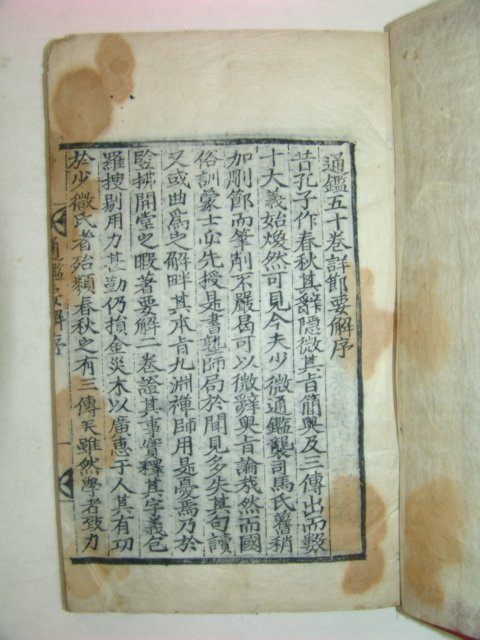 通鑑五十卷詳節要解序
昔孔子作春秋其辭隱微其旨簡奧及三傳出而數
十大義始煥然可見今夫少微通鑑襲司馬氏舊稍
加刪節而筆削不嚴曷可以微辭奧旨論哉然而國
俗訓蒙士必先授是書塾師局於聞見多失其句讀
又或曲爲之解畔其本旨九洲禪師用是憂焉乃於
竪拂開堂之暇著要解二卷證其事實釋其字義包
羅搜剔用力甚勤仍損金災木以廣惠于人其有功
於少微氏者殆類春秋之有三傳矣雖然學者致力
通鑑要解序